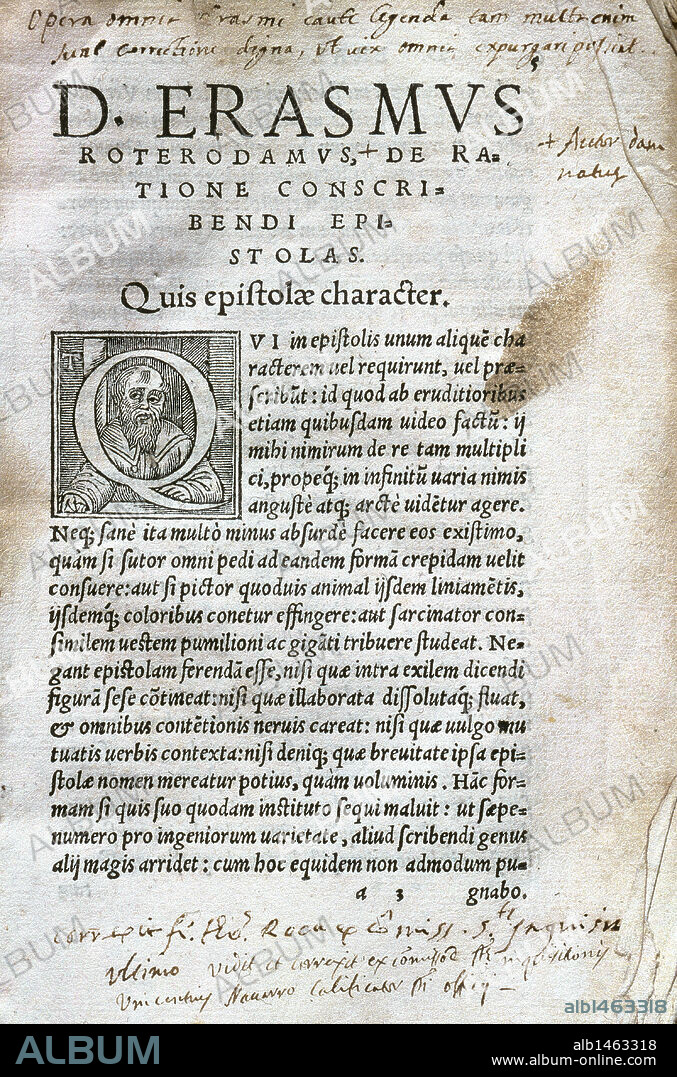 Opera omnia Erasmi caute legenda tam multa enim
sunt correctione digna, ut vix omnia expurgari possint.
D. ERASMVS
ROTERODAMVS,+ DE RA-
+ Auctor dam
natus
TIONE CONSCRI-
BENDI EPI-
STOLAS.
Quis epistolæ character.
QVI in epistolis unum aliquē cha
racterem uel requirunt, uel præ-
scribūt: id quod ab eruditioribus
etiam quibusdam uideo factū: ij
mihi nimirum de re tam multipli
ci, propeq; in infinitū uaria nimis
angustè atq; arctè uidētur agere.
Neq; sanè ita multò minus absurdè facere eos existimo,
quàm si sutor omni pedi ad eandem formā crepidam uelit
consuere: aut si pictor quoduis animal ijsdem liniamētis,
ijsdemq; coloribus conetur effingere: aut sarcinator con-
similem uestem pumilioni ac gigāti tribuere studeat. Ne-
gant epistolam ferendā esse, nisi quæ intra exilem dicendi
figurā sese cōtineat: nisi quæ illaborata dissolutaq; fluat,
& omnibus contētionis neruis careat: nisi quæ uulgo mu
tuatis uerbis contexta: nisi deniq; quæ breuitate ipsa epi-
stolæ nomen mereatur potius, quàm uoluminis. Hāc for-
mam si quis suo quodam instituto sequi maluit: ut sæpe-
numero pro ingeniorum uarietate, aliud scribendi genus
alij magis arridet: cum hoc equidem non admodum pu-
a 3 gnabo.
correxit fr. Roca ex Comiss. Sti Inquisit
ultimo vidit et correxit ex comissione Sti inquisitionis
Vincentius Navarro Calificator Sti officij
ALBUM
alb1463318
ALBUM
alb1463318
www.album-online.com